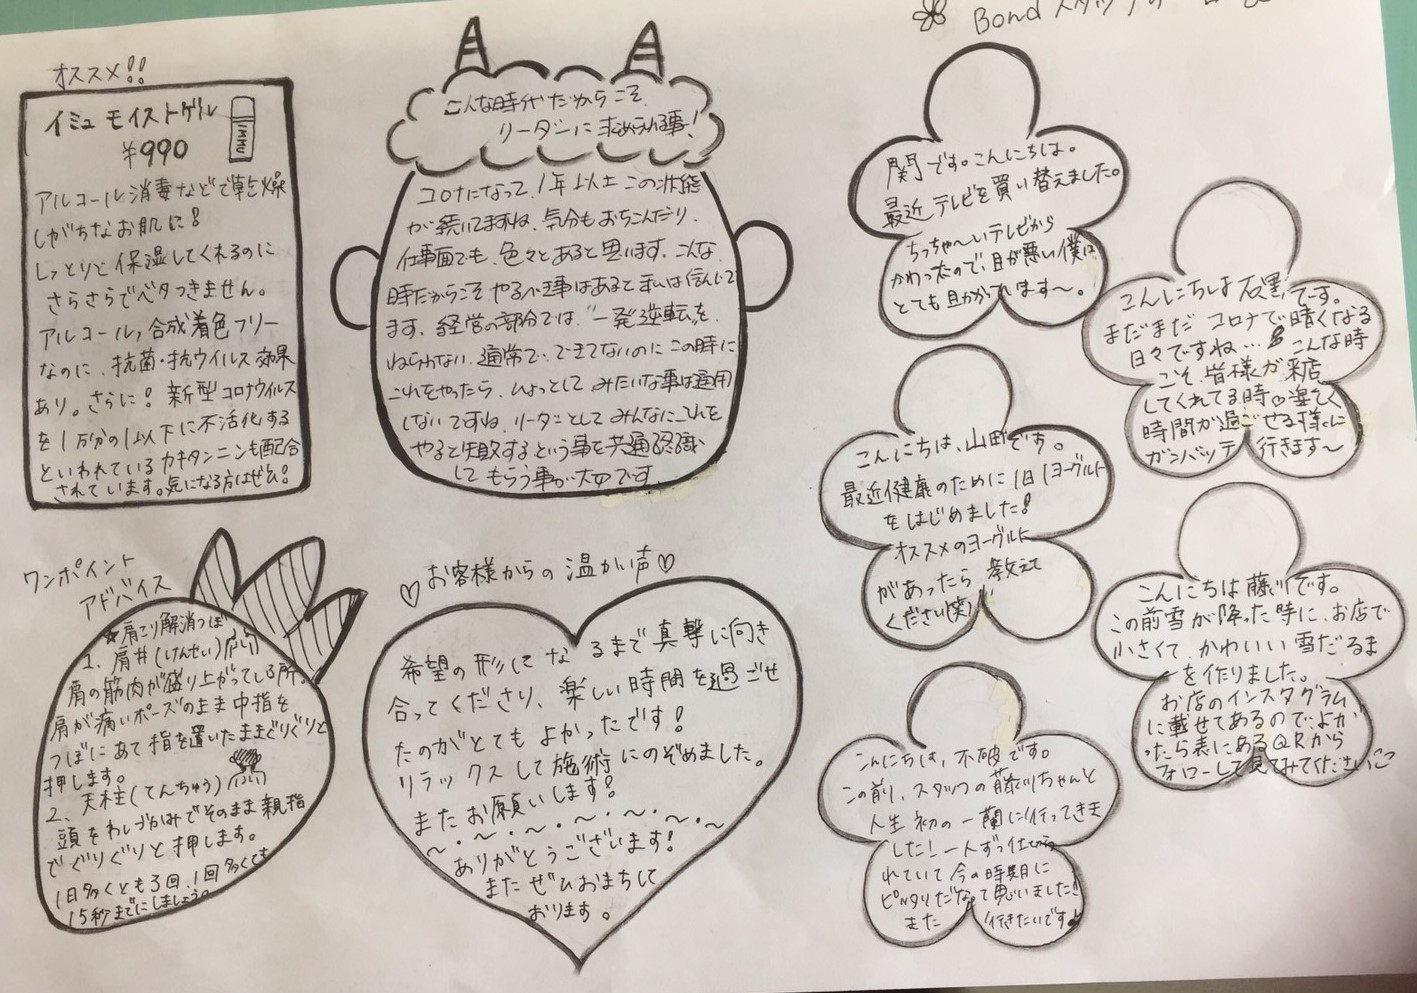 オススメ!!
イミュ モイストゲル
IMMU
¥990
アルコール消毒などで乾燥
しがちなお肌に!
しっとりと保湿してくれるのに
さらさらでベタつきません。
アルコール,合成着色フリー
なのに、抗菌・抗ウイルス効果
あり。さらに! 新型コロナウイルス
を1万分の1以下に不活化する
といわれているカキタンニンも配合
されています。気になる方はぜひ!
こんな時代だからこそ、
リーダーに求められる事!
コロナになって、1年以上この状態
が続いてますね、気分もおちこんだり、
仕事面でも、色々とあると思います、こんな
時だからこそ、やるべき事はあると私は信じて
ます、経営の部分では、"一発逆転"を、
ねらわない、通常で、できてないのにこの時に
これをやったら、ひょっとして みたいな事は通用
しないですね、リーダーとして みんなにこれを
やると失敗するという事を共通認識
してもらう事が大切です
ワンポイント
アドバイス
★肩こり解消つぼ
1、肩井(けんせい)
肩の筋肉が盛り上がっている所。
肩が痛いポーズのまま中指を
つぼにあて指を置いたままぐりぐりと
押します。
2、天柱(てんちゅう)
頭をわしづかみでそのまま親指
でぐりぐりと押します。
1日多くとも3回、1回多くても
15秒までにしましょう。
♡お客様からの温かい声♡
希望の形になるまで真撃に向き
合ってくださり、楽しい時間を過ごせ
たのがとてもよかったです!
リラックスして施術にのぞめました。
またお願いします!
〜・〜・〜・〜・〜・〜
ありがとうございます!
またぜひおまちして
おります。
Bond スタッフの
関です。こんにちは。
最近テレビを買い替えました。
ちっちゃ〜いテレビから
かわったので、目が悪い僕は
とても助かってます〜。
こんにちは 石黒です。
まだまだ コロナで暗くなる
日々ですね… こんな時
こそ、皆様が来店
してくれてる時
時間が過ごせる様に
ガンバッテ 行きます〜
こんにちは、山田です。
最近健康のために1日1ヨーグルト
をはじめました!
オススメのヨーグルト
があったら 教えて
ください(笑)
こんにちは 藤川です。
この前雪が降った時に、お店で
小さくて、かわいい雪だるま
を作りました。
お店のインスタグラム
に載せてあるので、よか
ったら表にあるQRから
フォローして見てみてください
こんにちは、不破です。
この前、スタッフの藤川ちゃんと
人生初の一蘭に行ってきま
した! 一人ずつ仕切ら
れていて今の時期に
ピッタリだなって思いました!
また 行きたいです♪